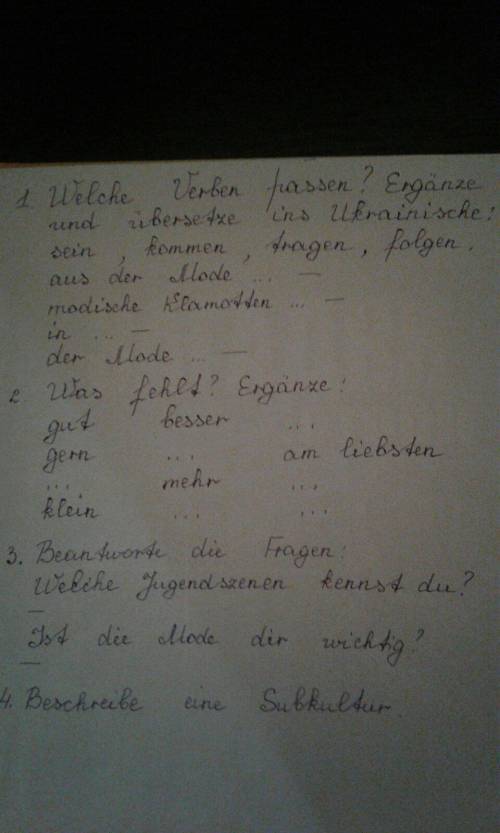 1. Welche Verben passen? Ergänze
und übersetze ins Ukrainische:
sein, kommen, tragen, folgen.
aus der Mode ... —
modische Klamotten ... —
in ... —
der Mode ... —
2. Was fehlt? Ergänze:
gut besser ...
gern ... am liebsten
... mehr ...
klein ... ...
3. Beantworte die Fragen:
Welche Jugendszenen kennst du?
—
Ist die Mode dir wichtig?
—
4. Beschreibe eine Subkultur.